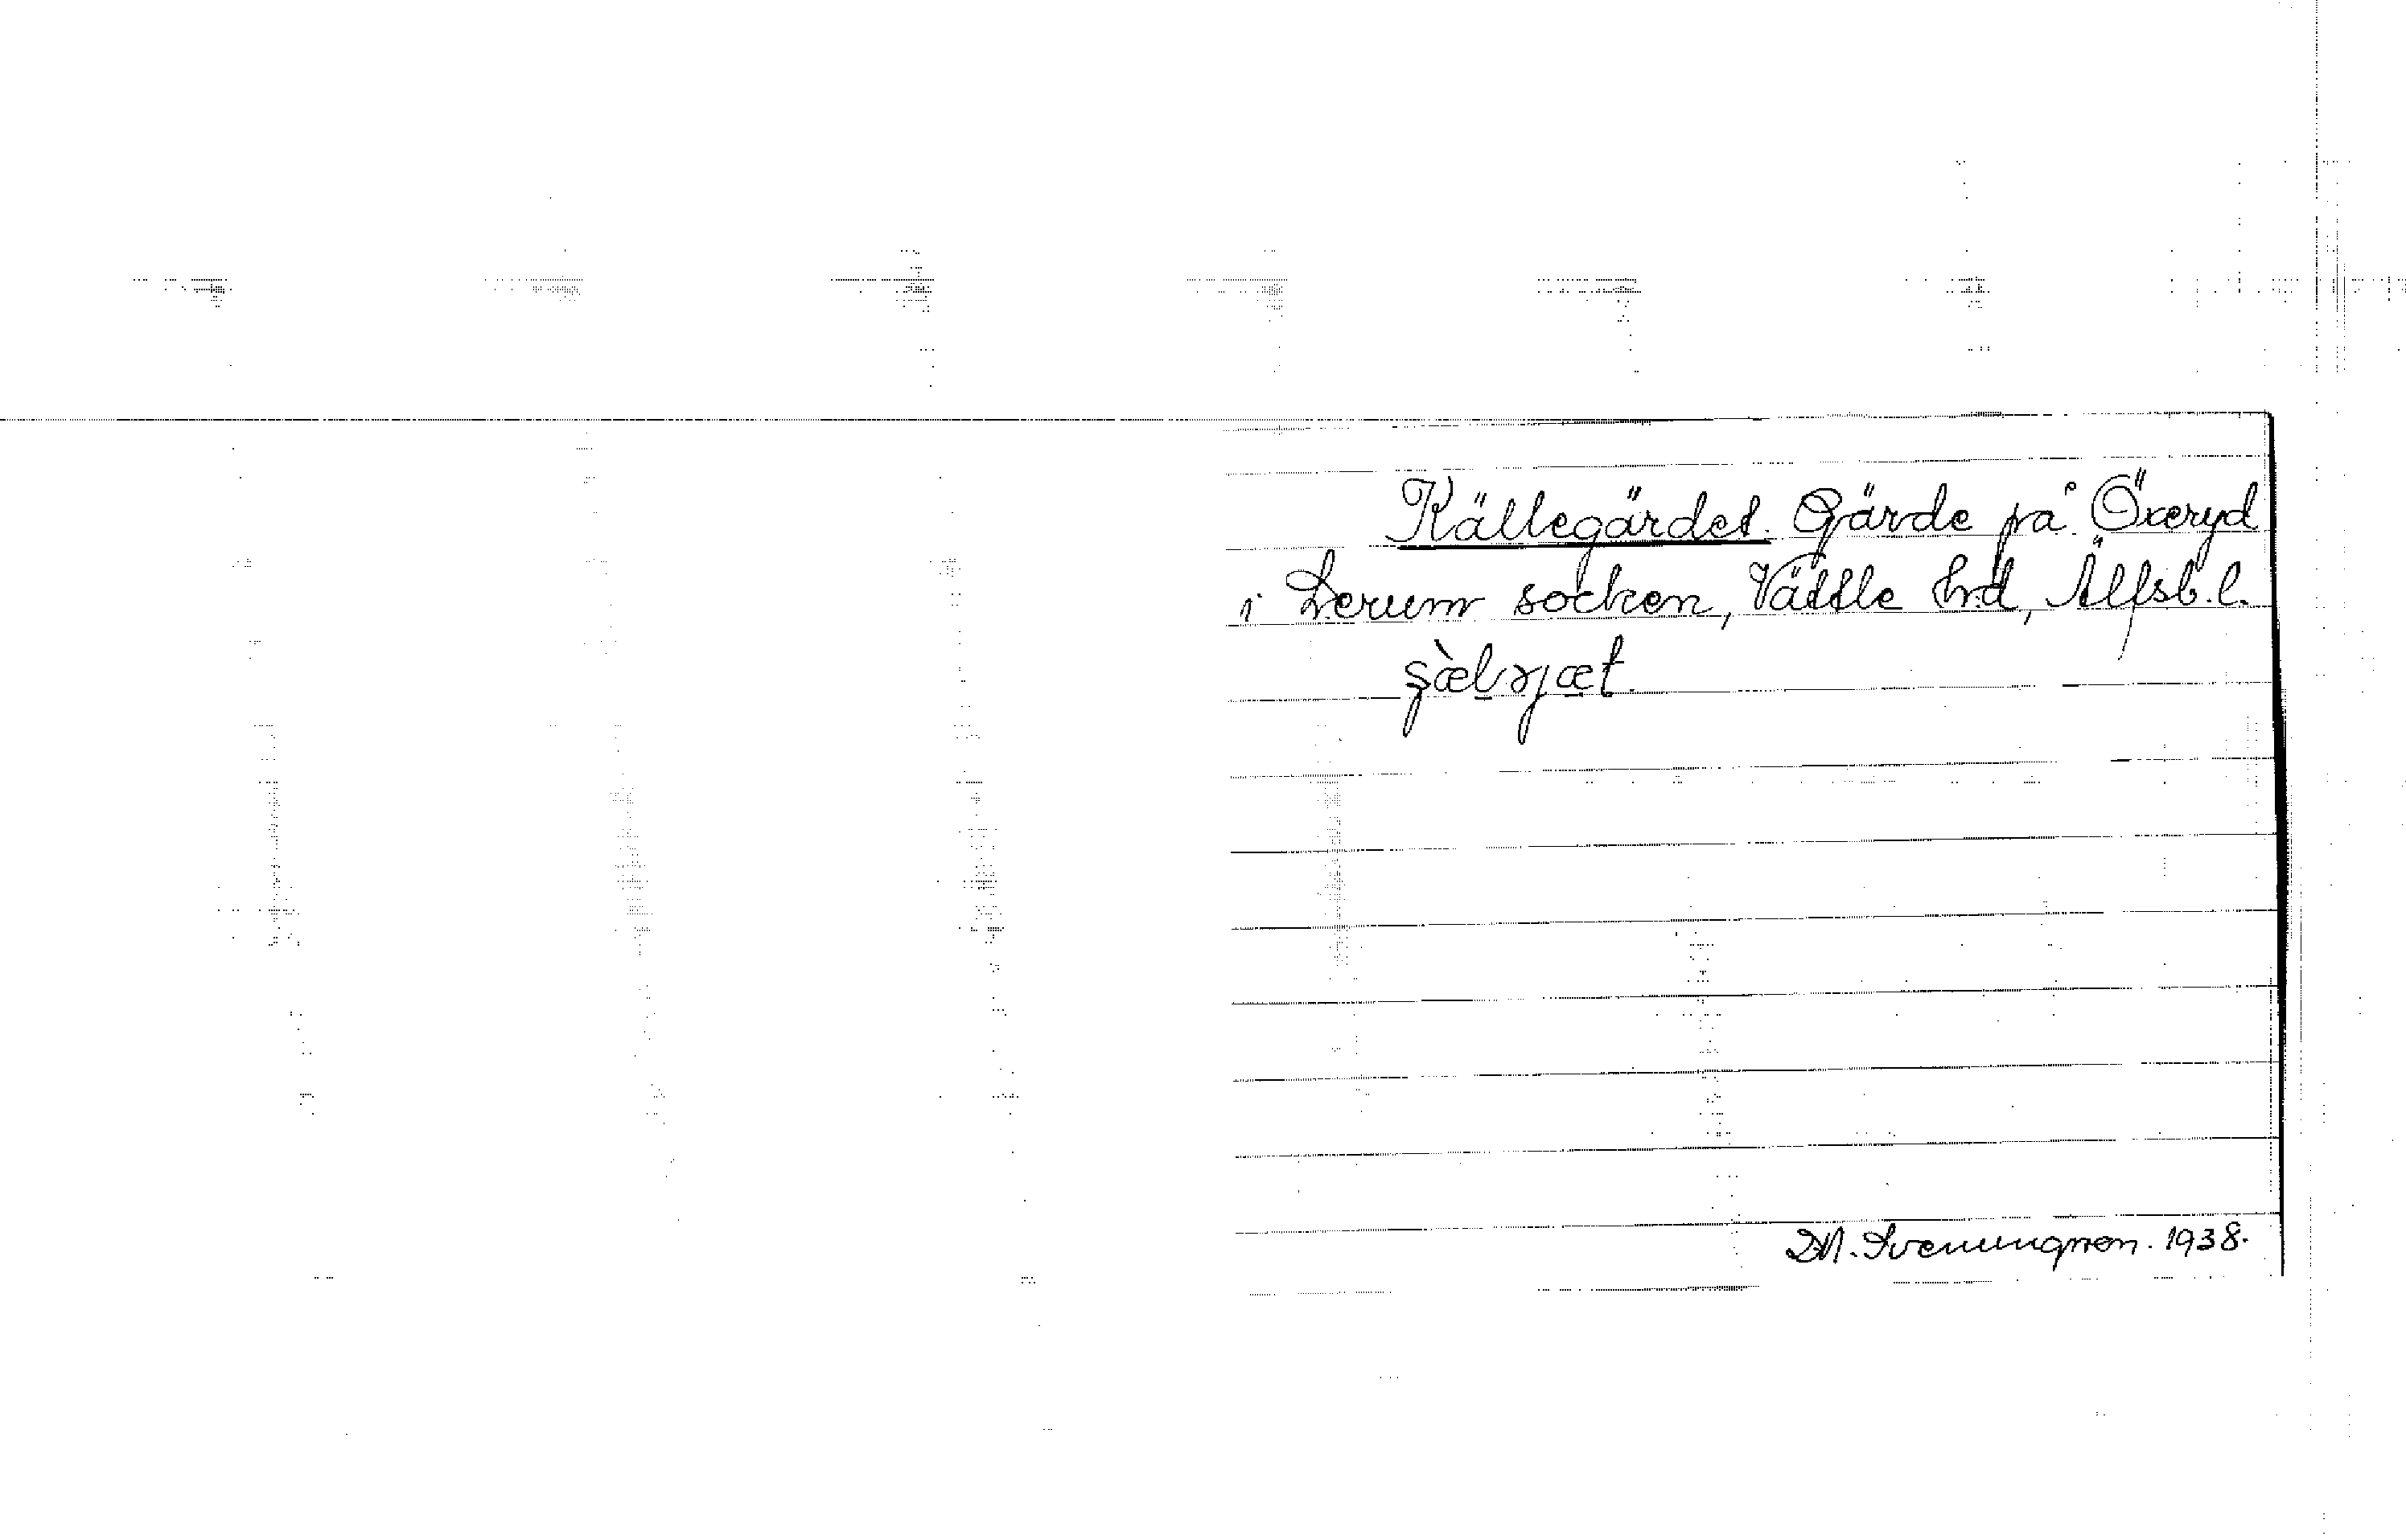 Källegärdet. Gärde på Öxeryd
i Lerum socken, Vättle hrd, Älfsb. l.
M. Sveningsson. 1938.